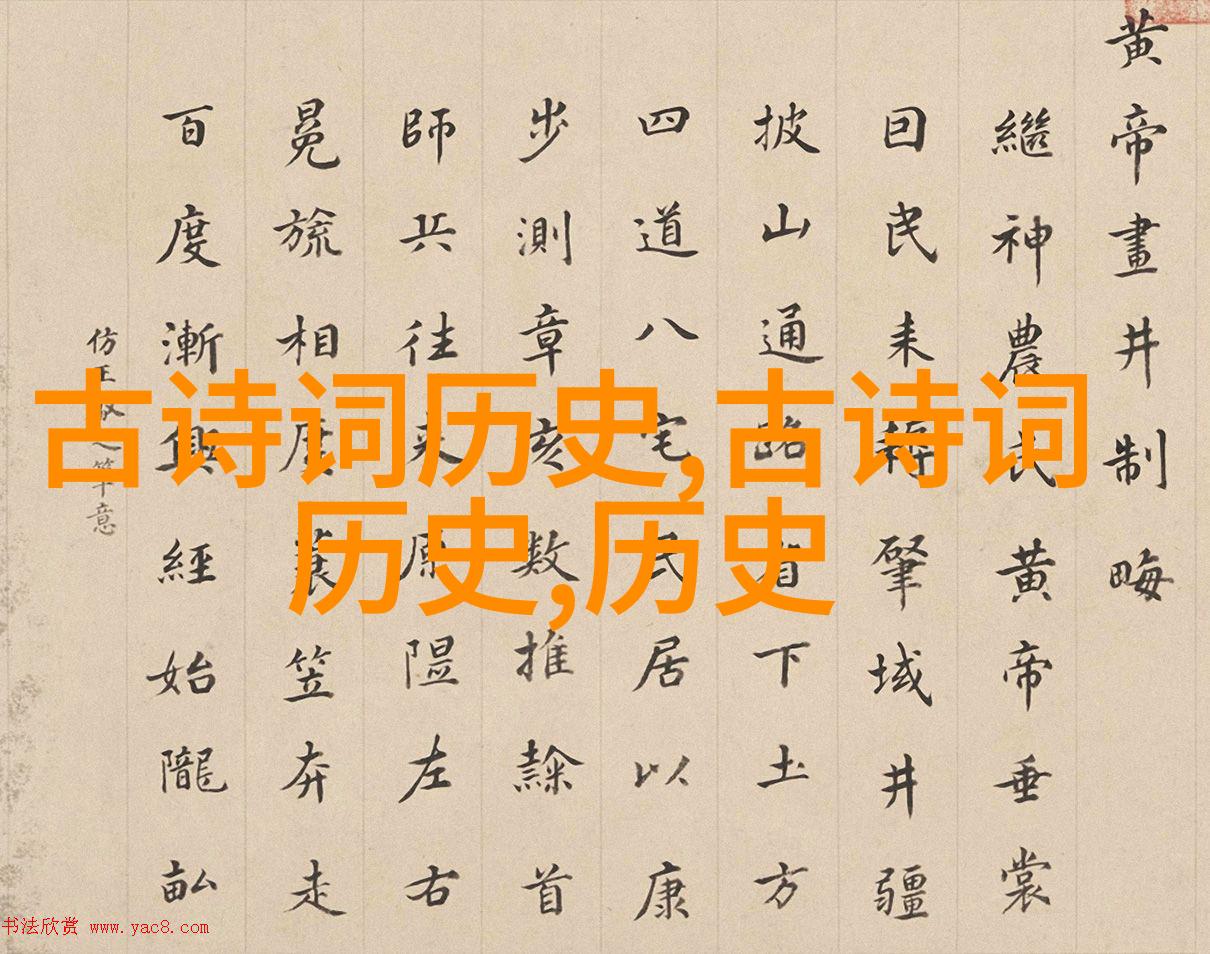 黄帝畫井制畮
繼神農氏黄帝垂裳
囙民耒耨肇域井疆
披山通路省下土方
四道八宅民居以康
步測章亥數推隸首
師兵往来原隰左右
冕旒相度蓑笠奔走
百度漸興經始隴畝
仿王之筆意
古诗词历史,古诗词
历史,历史
书法欣赏 www.yac8.com